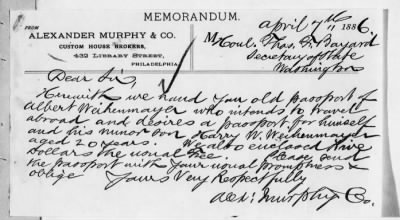 MEMORANDUM.
FROM
ALEXANDER MURPHY & CO.
CUSTOM HOUSE BROKERS,
432 LIBRARY STREET,
PHILADELPHIA
April 7th 1886.
M Honbl. Thos. F. Bayard
Secretary of State
Washington
Dear Sir,
Herewith we hand you old passport of
Albert Weihenmayer who intends to travel
abroad and desires a passport for himself
and his minor son Harry W. Weihenmayer
aged 20 years. We also enclosed five
dollars the usual fee. Please send
the passport with your usual promptness &
oblige
Yours Very Respectfully
Alex. Murphy & Co.